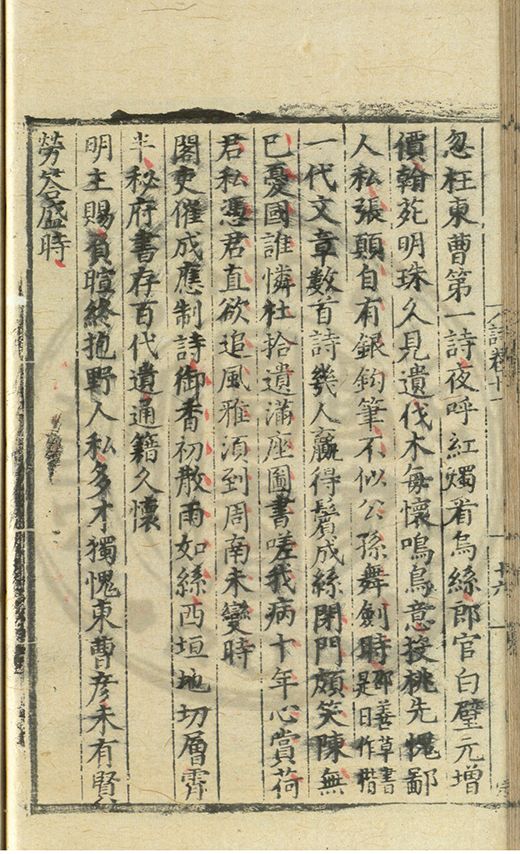 忽枉東曹第一詩夜呼紅燭看烏絲郎官白璧元增
價翰苑明珠久見遺伐木每懷鳴鳥意投桃先愧鄙
人私張顛自有銀鈎筆不似公孫舞劍時郎善草書是日作楷
一代文章數首詩幾人贏得鬢成絲閉門頗笑陳無
已憂國誰憐杜拾遺滿座圖書嗟我病十年心賞荷
君私憑君直欲追風雅須到周南未變時
閣吏催成應制詩御香初散雨如絲西垣地切層霄
半秘府書存百代遺通籍久懷
明主賜負暄終抱野人私多才獨愧東曹彥未有賢
勞答盛時
詩卷十一
十六